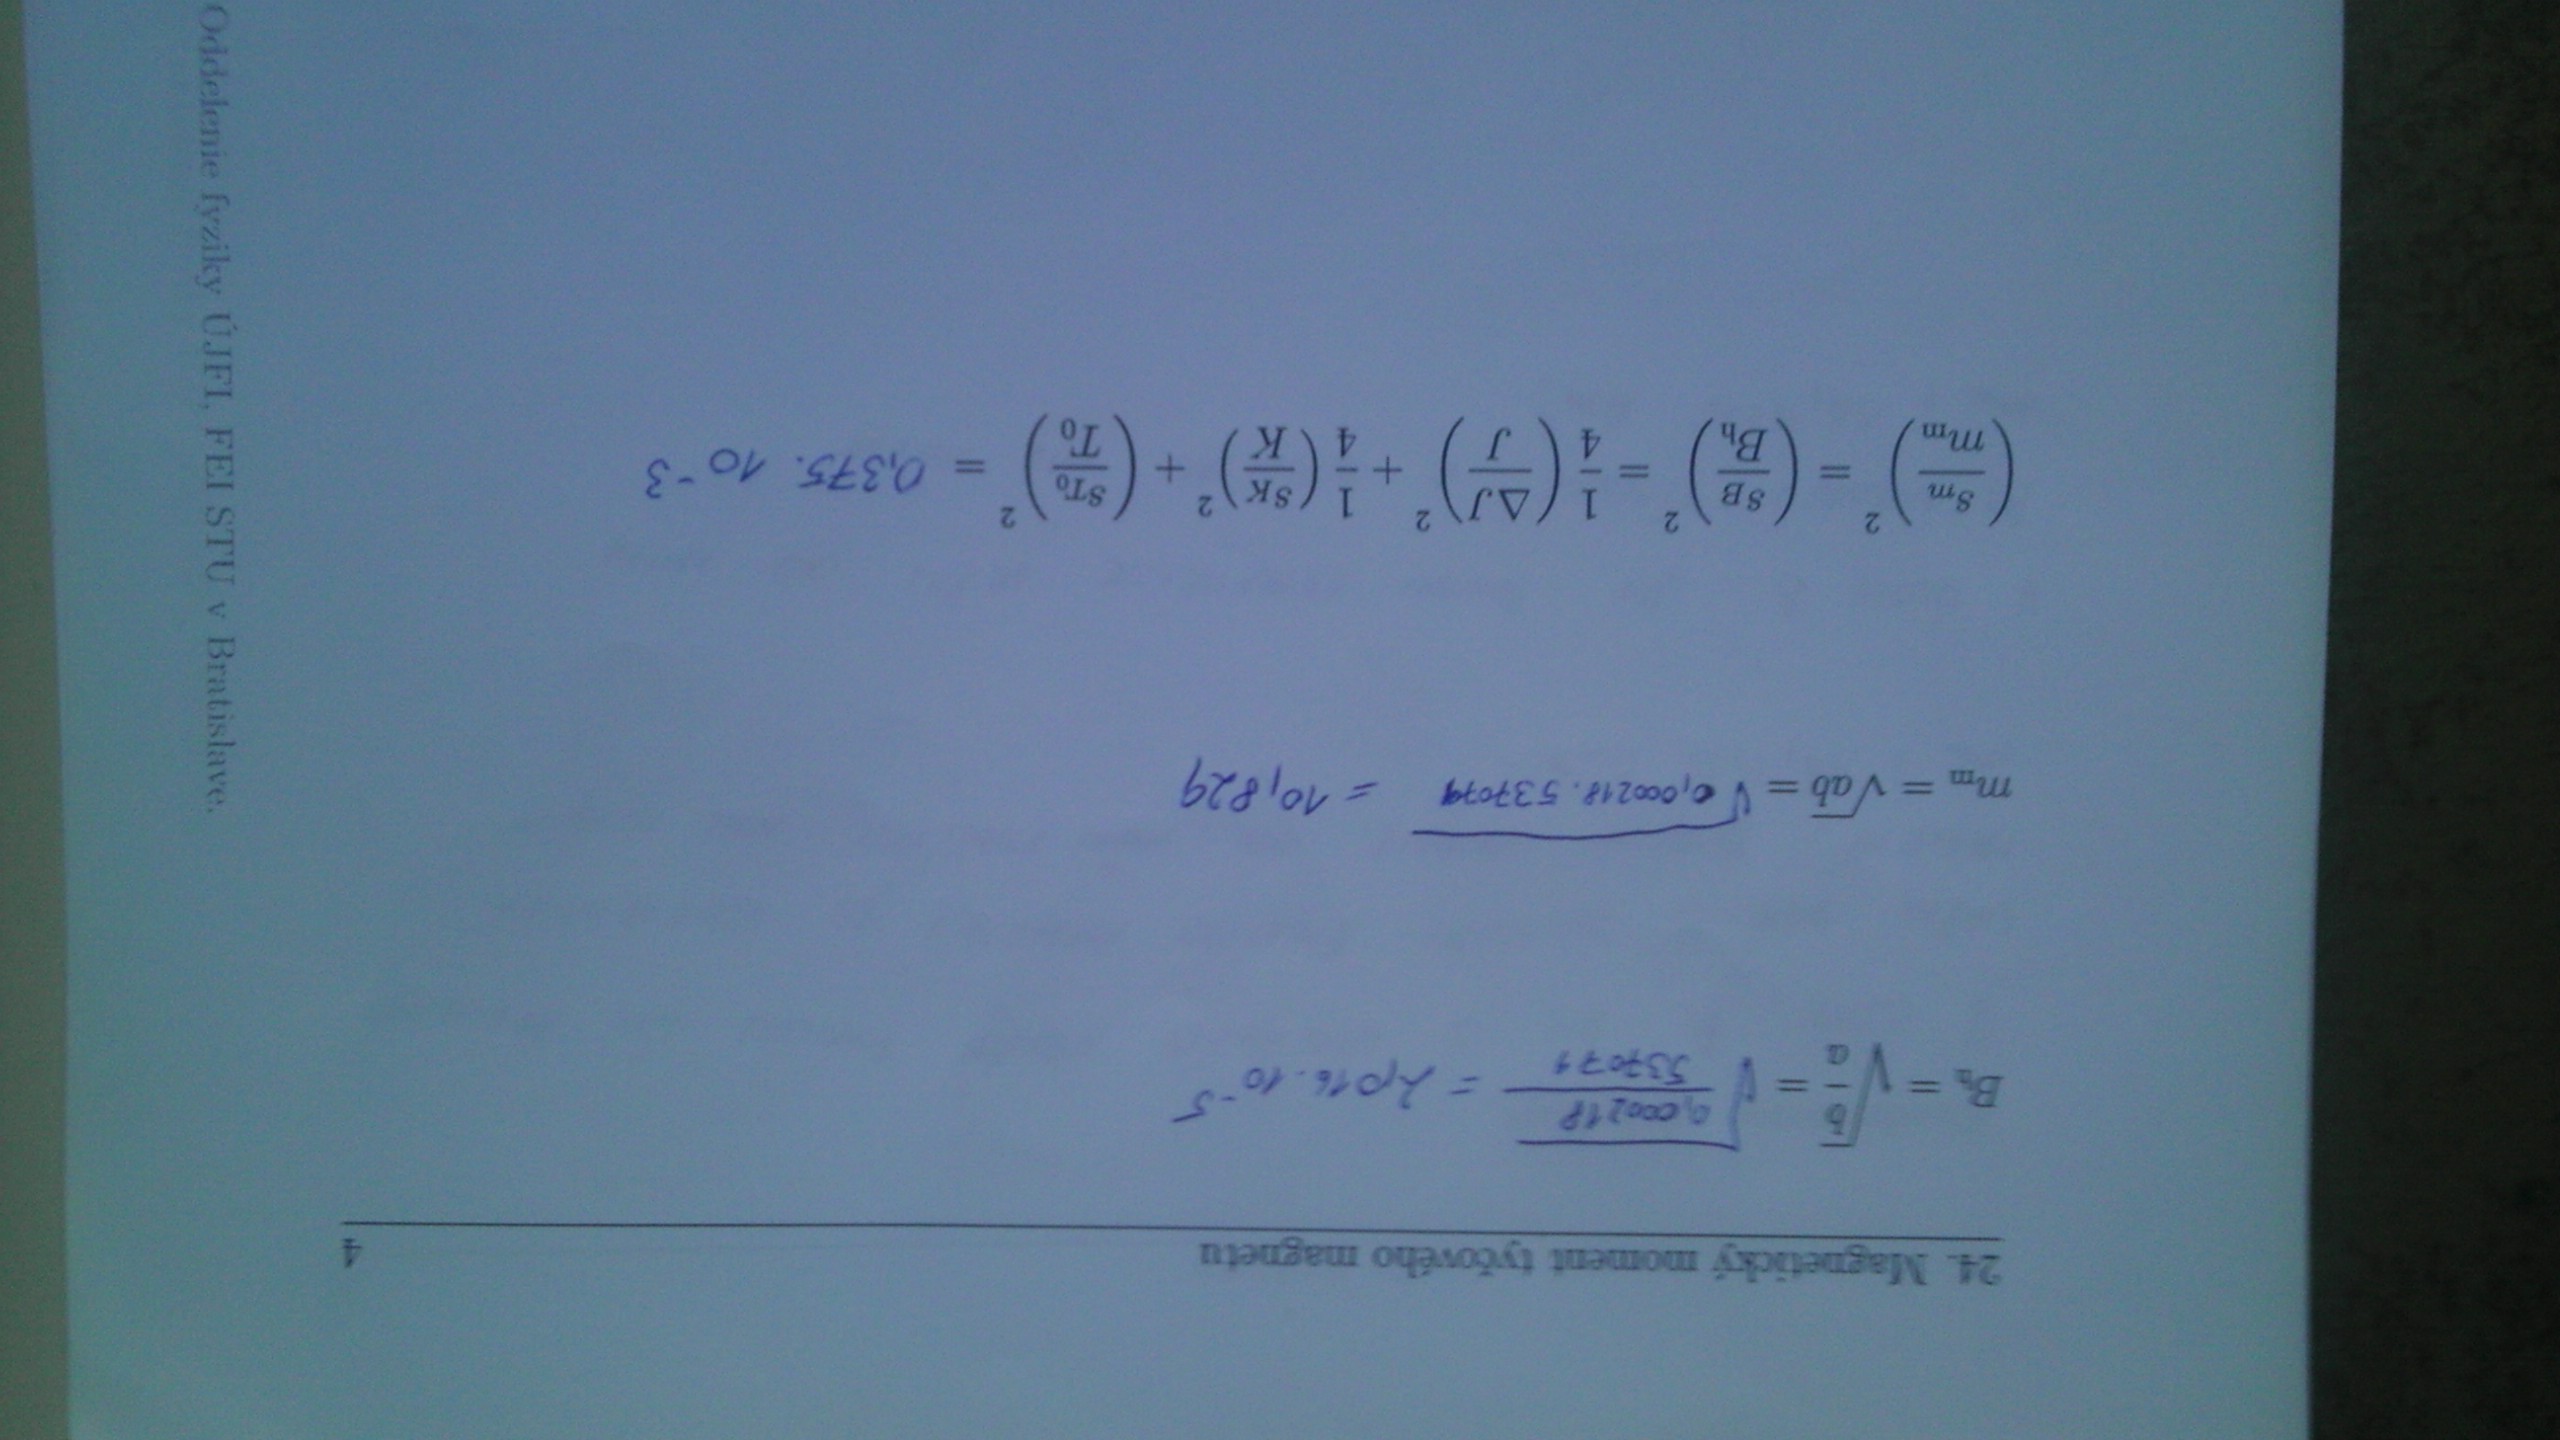 24. Magnetický moment tyčového magnetu 4
B_h = √(b/a) = √(0,000218/537071) = 2,016 · 10^-5
m_m = √ab = √0,000218 · 537079 = 10,829
(s_m/m_m)^2 = (s_B/B_h)^2 = 1/4 (ΔJ/J)^2 + 1/4 (s_K/K)^2 + (s_T0/T_0)^2 = 0,375 · 10^-3
Oddelenie fyziky ÚJFI, FEI STU v Bratislave.